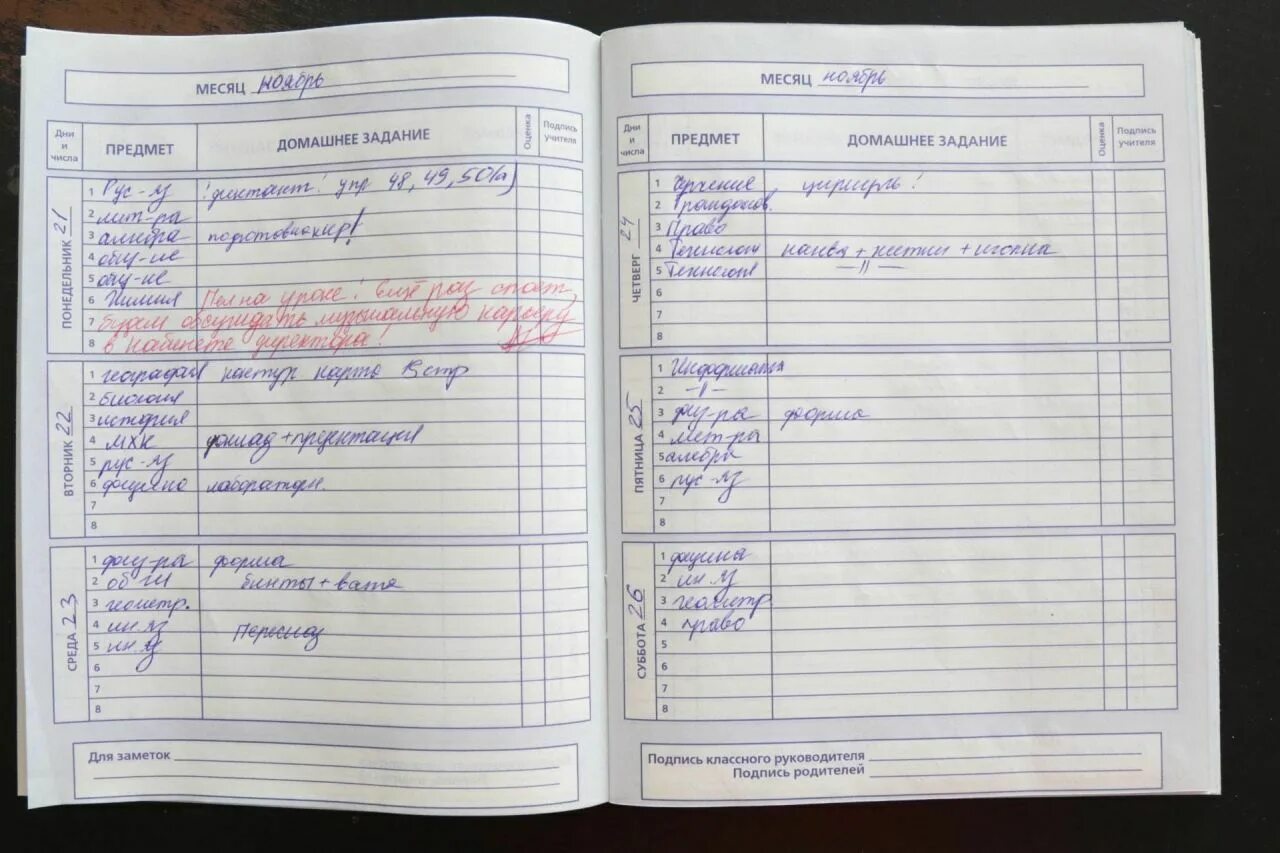 МЕСЯЦ ноябрь
Дни и числа ПРЕДМЕТ ДОМАШНЕЕ ЗАДАНИЕ Оценка Подпись учителя
ПОНЕДЕЛЬНИК 21
1 Рус-яз !диктант! упр 48, 49, 50(а)
2 лит-ра
3 алгебра
4 общ-ие
5 общ-ие
6 Химия Пел на уроке! Ещё раз споёт,
7 будем обсуждать музыкальную карьеру
8 в кабинете директора!
ВТОРНИК 22
1 география контур карта стр
2 биология
3 история
4 МХК доклад + презентация
5 рус-яз
6 физика лаборатор.
7
8
СРЕДА 23
1 физ-ра форма
2 ОБЖ бинты + вата
3 геометр.
4 ин.яз Пересказ
5 ин.яз
6
7
8
Для заметок
МЕСЯЦ ноябрь
Дни и числа ПРЕДМЕТ ДОМАШНЕЕ ЗАДАНИЕ Оценка Подпись учителя
ЧЕТВЕРГ 24
1 Черчение циркуль!
2 Граждановед.
3 Право
4 Технология канва + нитки + иголка
5 Технология —//—
6
7
8
ПЯТНИЦА 25
1 Информатика
2 —//—
3 физ-ра форма
4 лит-ра
5 алгебра
6 рус-яз
7
8
СУББОТА 26
1 физика
2 ин.яз
3 геометр.
4 право
5
6
7
8
Подпись классного руководителя
Подпись родителей